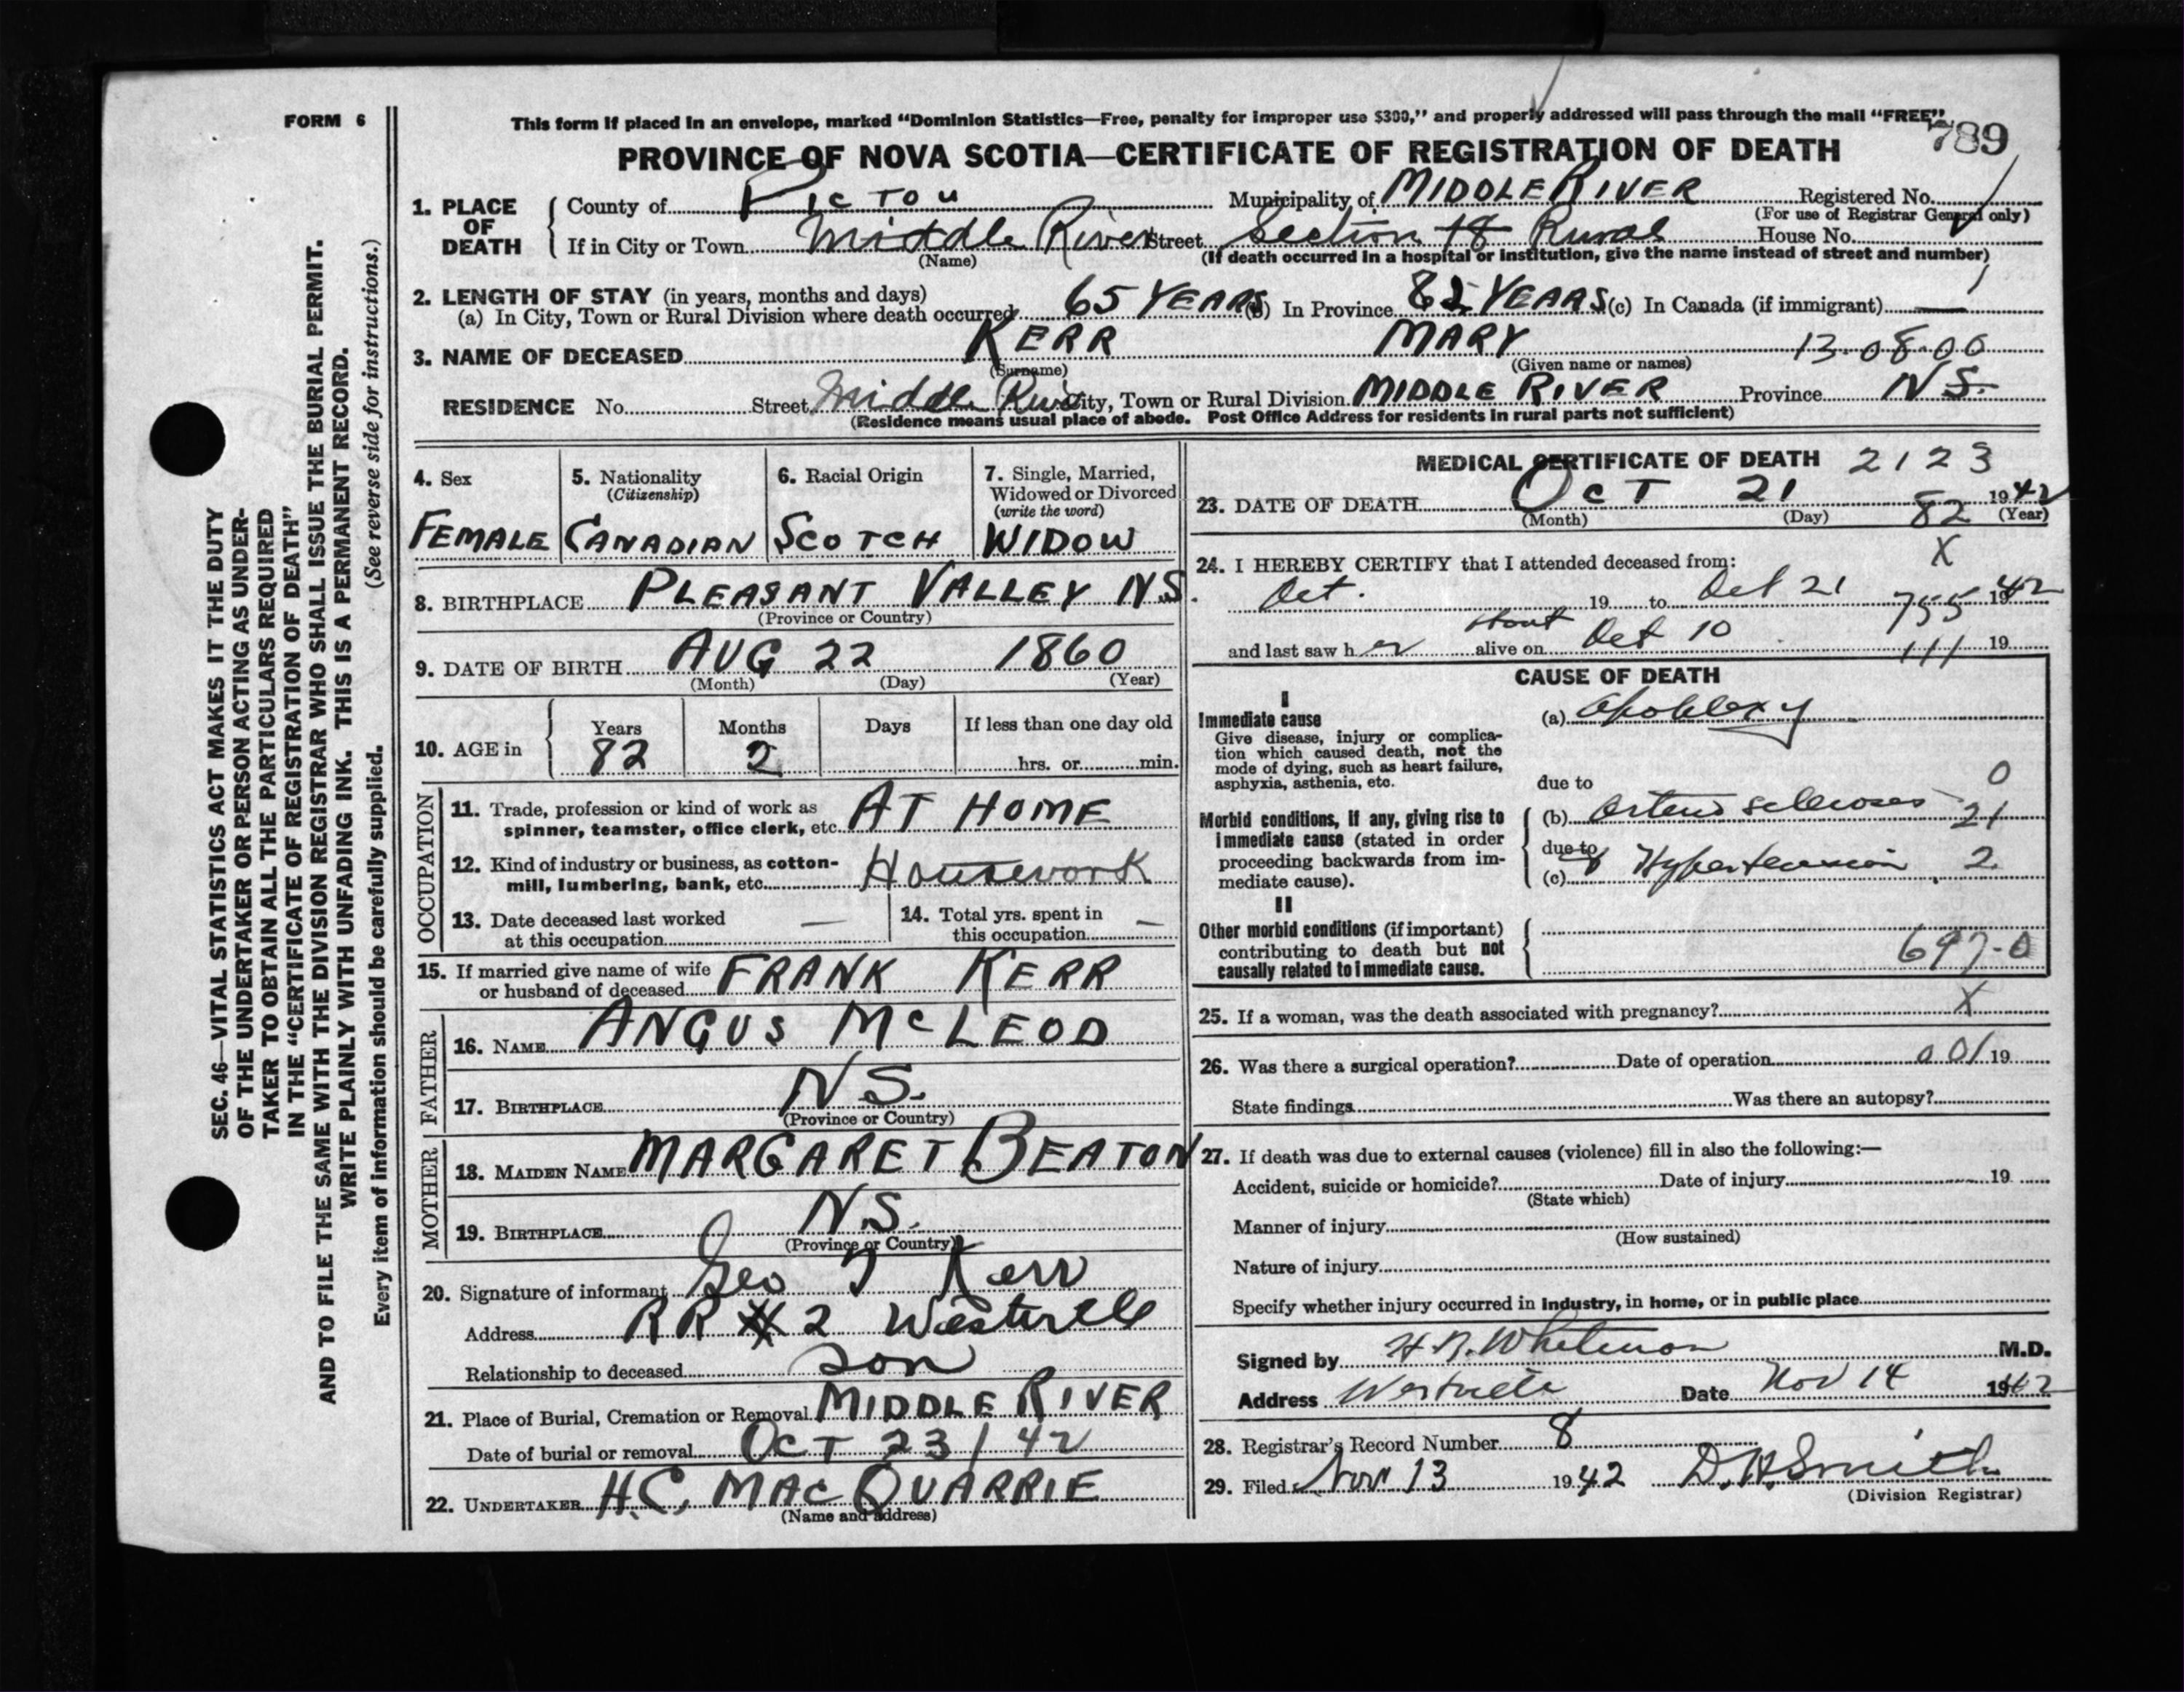 FORM 6
This form if placed in an envelope, marked “Dominion Statistics—Free, penalty for improper use $300,” and properly addressed will pass through the mail “FREE”.
789
PROVINCE OF NOVA SCOTIA—CERTIFICATE OF REGISTRATION OF DEATH
1. PLACE OF DEATH
County of PICTOU Municipality of MIDDLE RIVER Registered No.
(For use of Registrar General only)
If in City or Town Middle River Street Section 18 Rural House No.
(Name) (If death occurred in a hospital or institution, give the name instead of street and number)
2. LENGTH OF STAY (in years, months and days)
(a) In City, Town or Rural Division where death occurred 65 YEARS (b) In Province 82 YEARS (c) In Canada (if immigrant) —
3. NAME OF DECEASED KERR MARY 13-08-00
(Surname) (Given name or names)
RESIDENCE No. Street Middle River City, Town or Rural Division MIDDLE RIVER Province N.S.
(Residence means usual place of abode. Post Office Address for residents in rural parts not sufficient)
4. Sex FEMALE
5. Nationality (Citizenship) CANADIAN
6. Racial Origin SCOTCH
7. Single, Married, Widowed or Divorced (write the word) WIDOW
8. BIRTHPLACE PLEASANT VALLEY N.S.
(Province or Country)
9. DATE OF BIRTH AUG 22 1860
(Month) (Day) (Year)
10. AGE in Years 82 Months 2 Days If less than one day old hrs. or min.
OCCUPATION
11. Trade, profession or kind of work as spinner, teamster, office clerk, etc. AT HOME
12. Kind of industry or business, as cotton-mill, lumbering, bank, etc. Housework
13. Date deceased last worked at this occupation —
14. Total yrs. spent in this occupation —
15. If married give name of wife or husband of deceased FRANK KERR
FATHER
16. NAME ANGUS McLEOD
17. BIRTHPLACE N.S.
(Province or Country)
MOTHER
18. MAIDEN NAME MARGARET BEATON
19. BIRTHPLACE N.S.
(Province or Country)
20. Signature of informant Geo T Kerr
Address RR # 2 Westville
Relationship to deceased son
21. Place of Burial, Cremation or Removal MIDDLE RIVER
Date of burial or removal OCT 23/42
22. UNDERTAKER H.C. MACQUARRIE
(Name and address)
MEDICAL CERTIFICATE OF DEATH 2123
23. DATE OF DEATH OCT 21 1942
(Month) (Day) 82 (Year)
24. I HEREBY CERTIFY that I attended deceased from: X
Oct. 19 to Oct 21 1942
755
and last saw her alive on about Oct 10 19
111
CAUSE OF DEATH
I
Immediate cause
Give disease, injury or complication which caused death, not the mode of dying, such as heart failure, asphyxia, asthenia, etc.
(a) Apoplexy
due to 0
Morbid conditions, if any, giving rise to immediate cause (stated in order proceeding backwards from immediate cause).
(b) Arterio sclerosis 21
due to
(c) & Hypertension 2
II
Other morbid conditions (if important) contributing to death but not causally related to immediate cause.
697-0
25. If a woman, was the death associated with pregnancy? X
26. Was there a surgical operation? Date of operation 001 19
State findings Was there an autopsy?
27. If death was due to external causes (violence) fill in also the following:—
Accident, suicide or homicide? Date of injury 19
(State which)
Manner of injury
(How sustained)
Nature of injury
Specify whether injury occurred in industry, in home, or in public place
Signed by H. R. Whitman M.D.
Address Westville Date Nov 14 1942
28. Registrar's Record Number 8
29. Filed Nov 13 1942 D. H. Smith
(Division Registrar)
SEC. 46—VITAL STATISTICS ACT MAKES IT THE DUTY
OF THE UNDERTAKER OR PERSON ACTING AS UNDER-
TAKER TO OBTAIN ALL THE PARTICULARS REQUIRED
IN THE “CERTIFICATE OF REGISTRATION OF DEATH”
AND TO FILE THE SAME WITH THE DIVISION REGISTRAR WHO SHALL ISSUE THE BURIAL PERMIT.
WRITE PLAINLY WITH UNFADING INK. THIS IS A PERMANENT RECORD.
Every item of information should be carefully supplied. (See reverse side for instructions.)